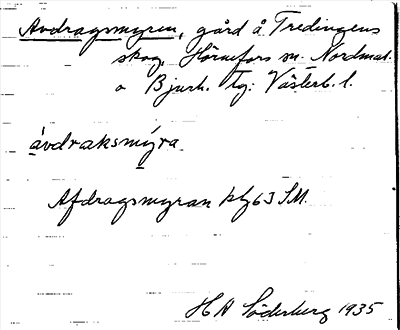 Avdragsmyren, gård å Tredingens
skog, Hörnefors sn. Nordmal.
o Bjurh. tg. Västerb. l.
ávdraksmýra.
Afdragsmyran kbg 63 SM.
H A Söderberg 1935